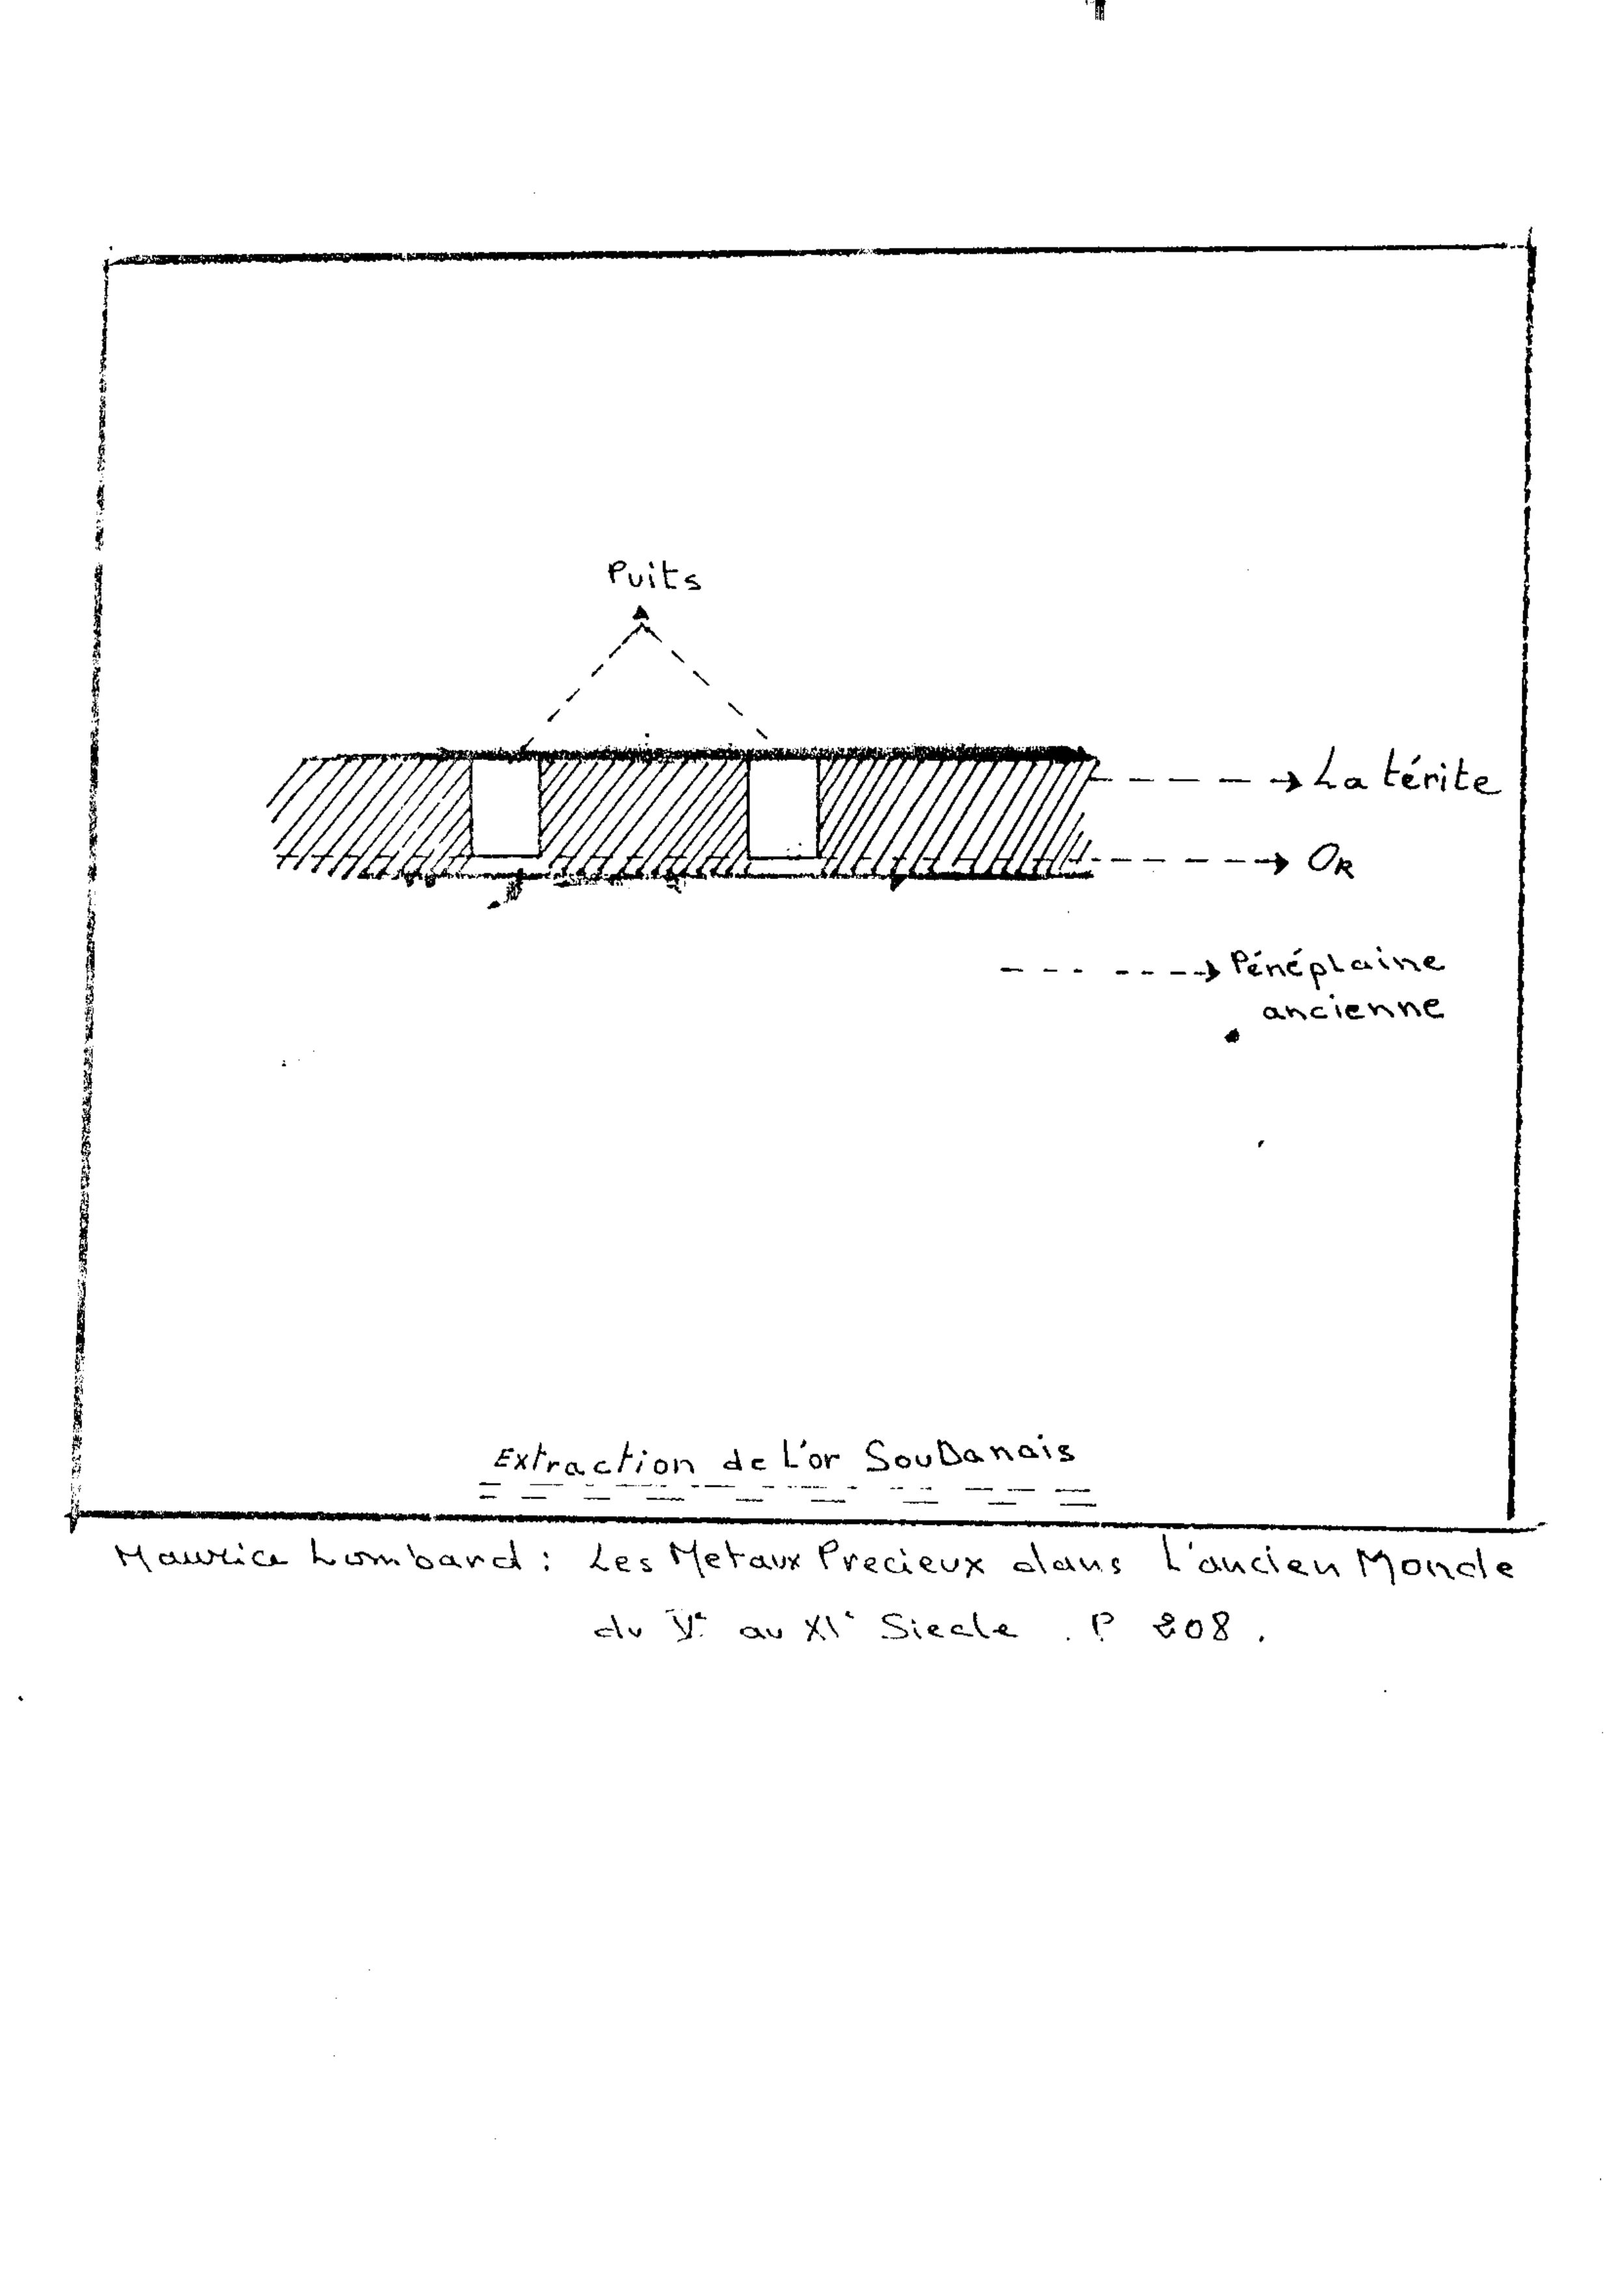 Puits
La térite
OR
Pénéplaine
ancienne
Extraction de L'or SouDanais
Maurice Lombard : Les Metaux Precieux dans L'ancien Monde
du Ve au XIe Siecle . P 208 .